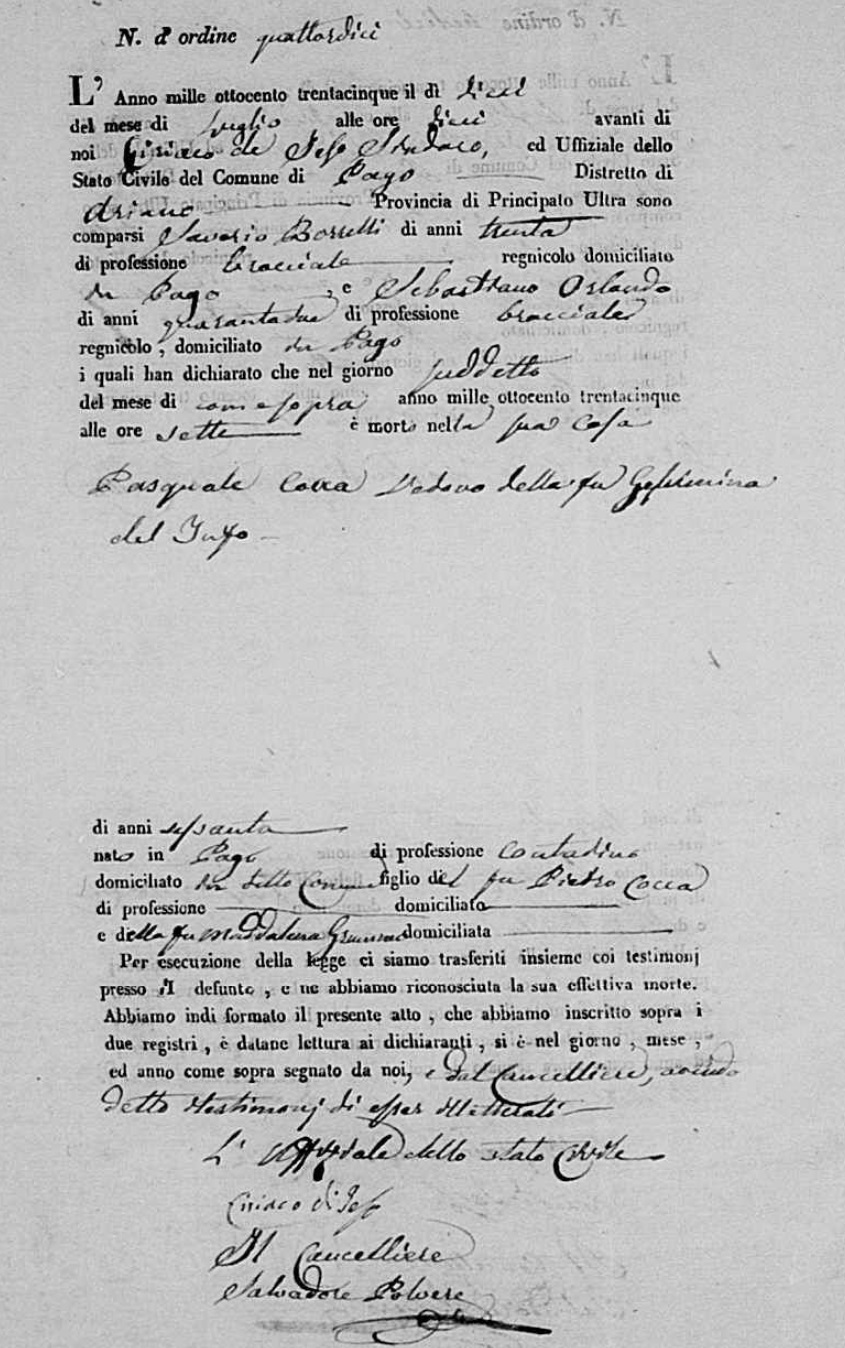 N. d' ordine quattordici
L' Anno mille ottocento trentacinque il dì dieci
del mese di luglio alle ore dieci avanti di
noi Ciriaco de Jeso Sindaco, ed Uffiziale dello
Stato Civile del Comune di Pago Distretto di
Ariano Provincia di Principato Ultra sono
comparsi Saverio Borrelli di anni trenta
di professione bracciale regnicolo domiciliato
in Pago, e Sebastiano Orlando
di anni quarantadue di professione bracciale
regnicolo, domiciliato in Pago
i quali han dichiarato che nel giorno suddetto
del mese di come sopra anno mille ottocento trentacinque
alle ore sette è morto nella sua casa
Pasquale Cocca Vedovo della fu Gelsomina
del
di anni sessanta
nato in Pago di professione contadino
domiciliato in detto Comune figlio del fu Pietro Cocca
di professione domiciliato
e della fu Maddalena domiciliata
Per esecuzione della legge ci siamo trasferiti insieme coi testimonj
presso il defunto, e ne abbiamo riconosciuta la sua effettiva morte.
Abbiamo indi formato il presente atto, che abbiamo inscritto sopra i
due registri, è datane lettura ai dichiaranti, si è nel giorno, mese,
ed anno come sopra segnato da noi, e dal Cancelliere, avendo
detto i testimonj di esser illetterati
L' Uffiziale dello stato Civile
Ciriaco di Jeso
Il Cancelliere
Salvadore Polvere